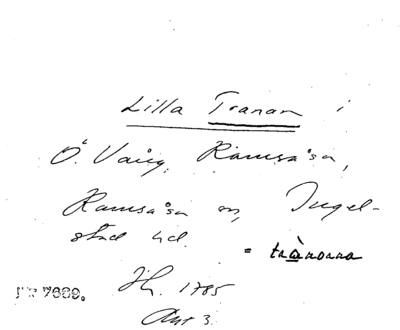 Lilla Tranan i
Ö. Vång, Ramsåsa,
Ramsåsa sn, Ingel-
stad hd.
= trànanna
Jh. 1785
Akt 3.